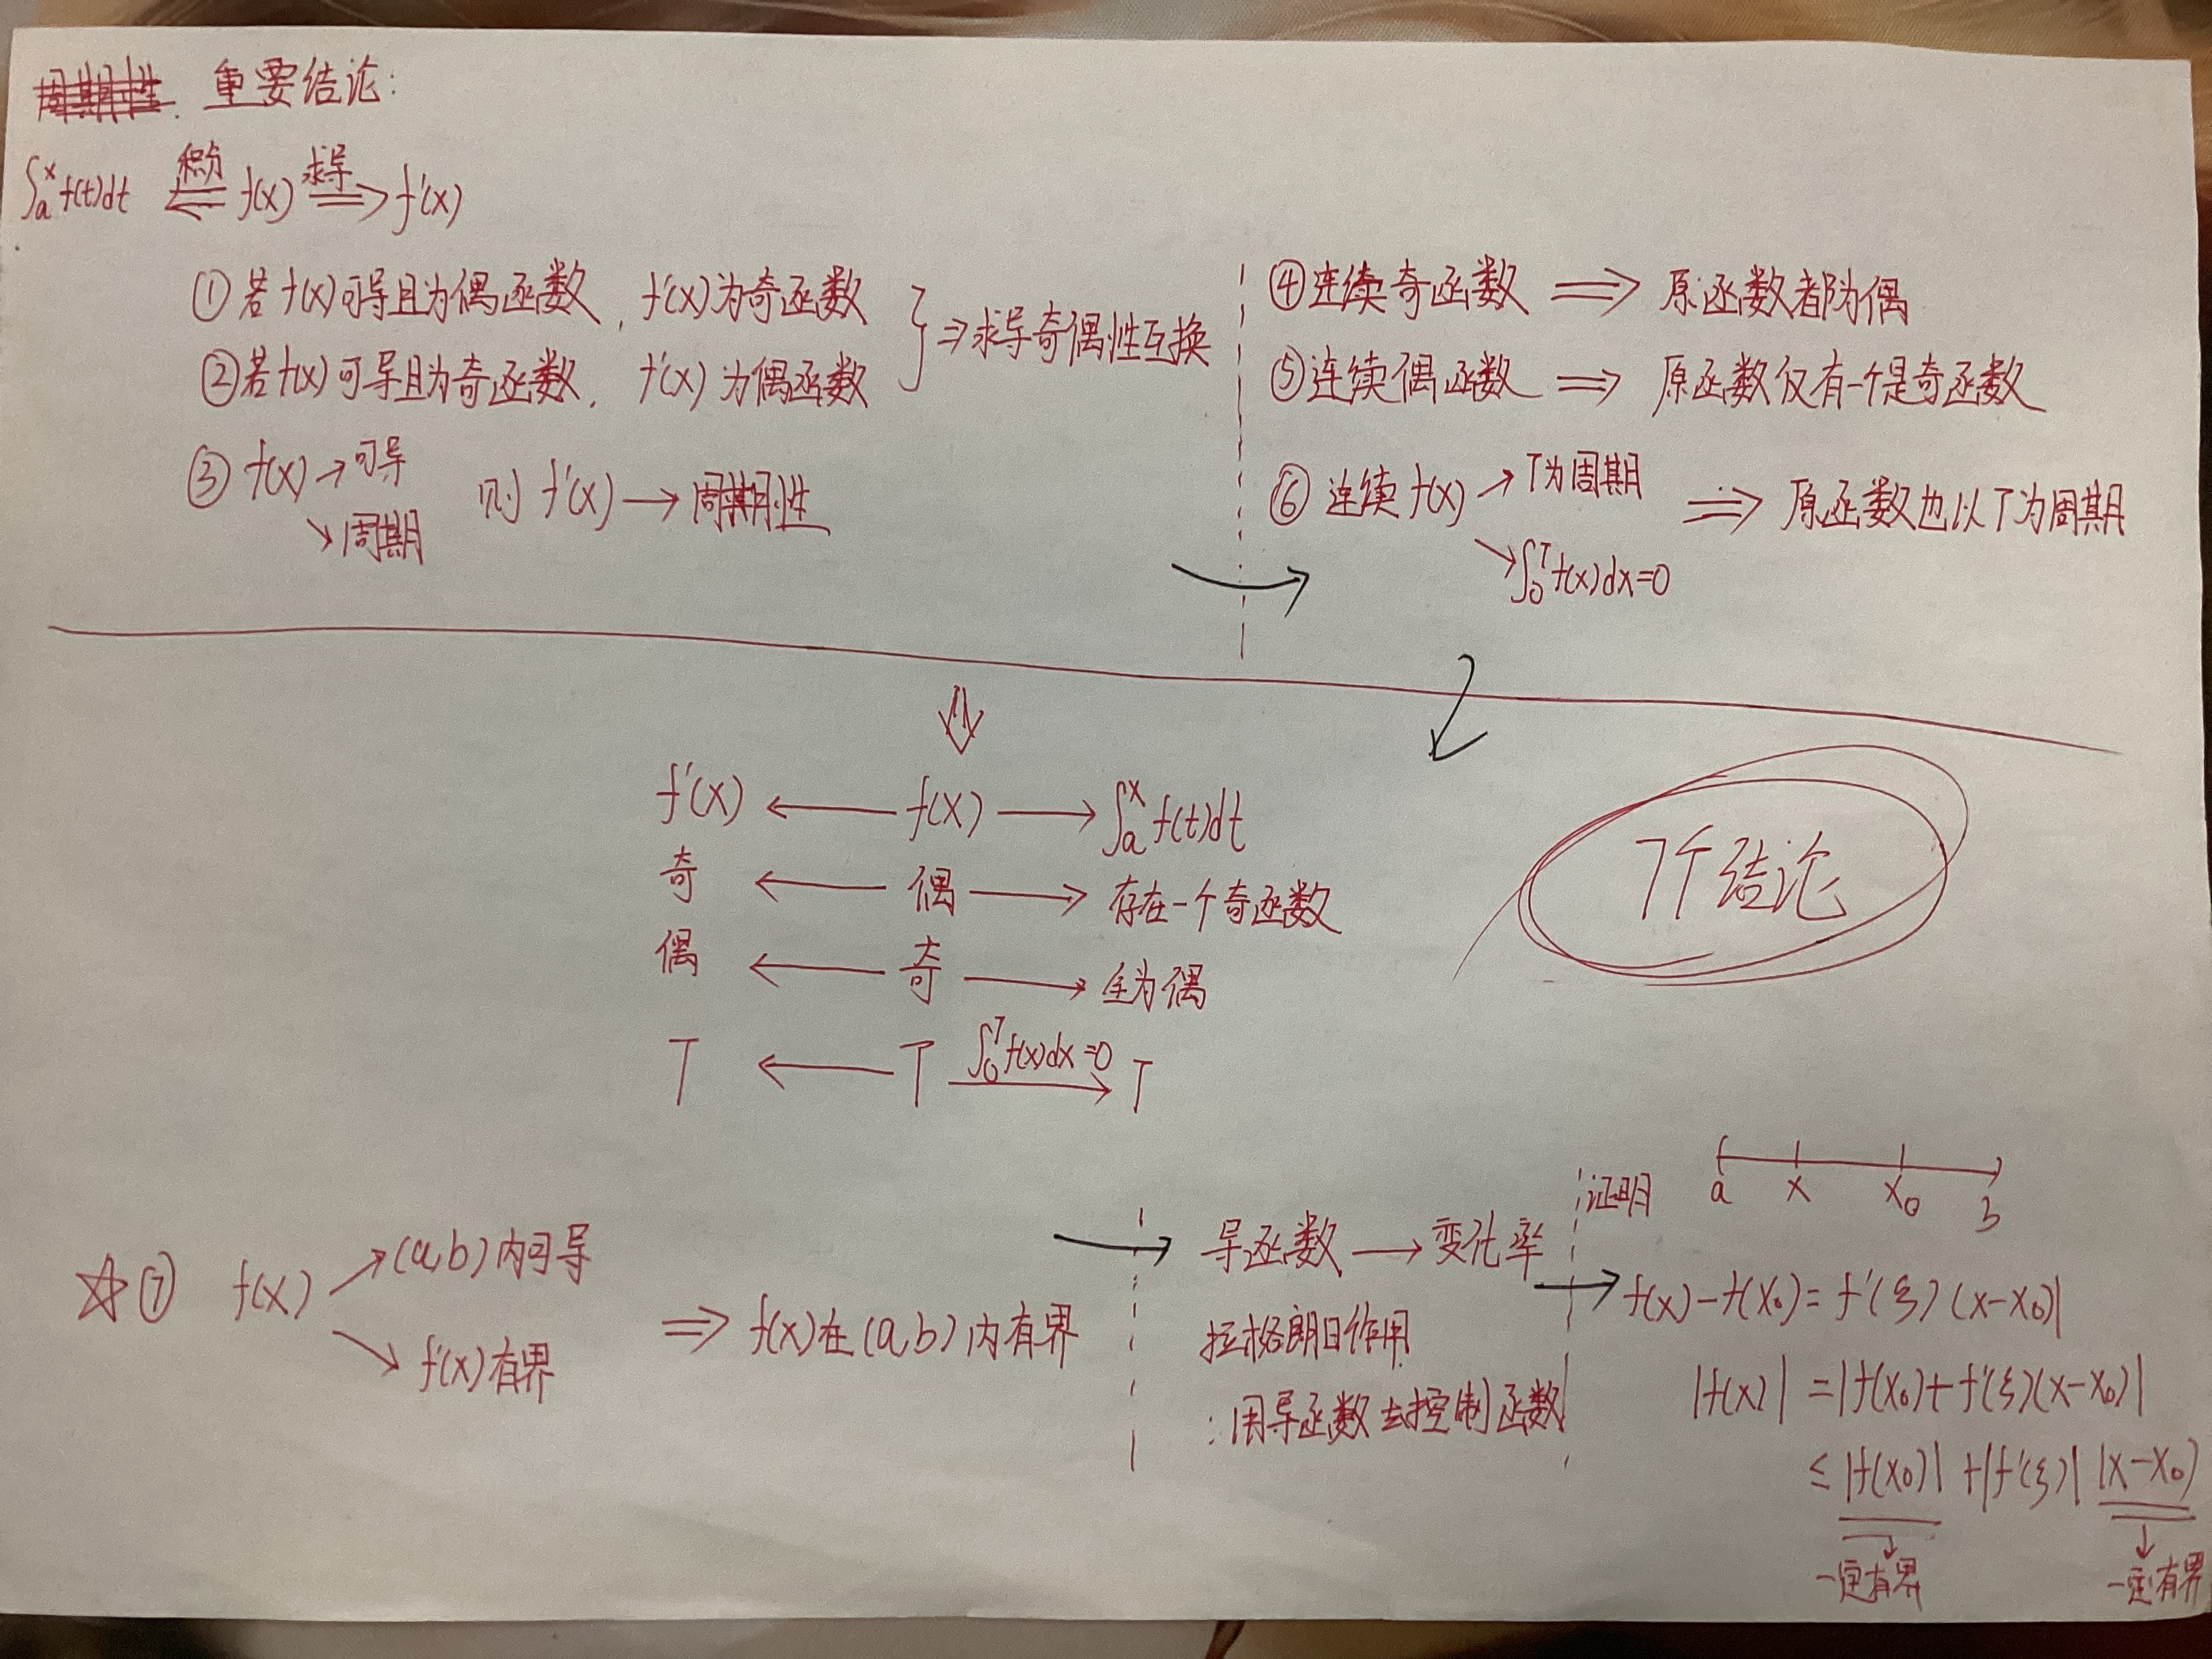 周期性. 重要结论:
∫ₐˣ f(t)dt ⟸积分 f(x) 求导⟹ f'(x)
① 若 f(x) 可导且为偶函数, f'(x) 为奇函数
② 若 f(x) 可导且为奇函数, f'(x) 为偶函数
} ⇒ 求导奇偶性互换
③ f(x) → 可导
↘ 周期
则 f'(x) → 周期性
④ 连续奇函数 ⟹ 原函数都为偶
⑤ 连续偶函数 ⟹ 原函数仅有一个是奇函数
⑥ 连续 f(x) → T为周期
↘ ∫₀ᵀ f(x)dx=0
⟹ 原函数也以T为周期
⇓
f'(x) ← f(x) → ∫ₐˣ f(t)dt
奇 ← 偶 → 存在一个奇函数
偶 ← 奇 → 全为偶
T ← T ∫₀ᵀ f(x)dx=0 → T
7个结论
☆⑦ f(x) ↗ (a,b)内可导
↘ f'(x)有界
⟹ f(x)在(a,b)内有界
→ 导函数 → 变化率
拉格朗日作用
: 用导函数去控制函数
证明
a x x₀ b
→ f(x)-f(x₀)= f'(ξ)(x-x₀)|
|f(x)| = |f(x₀)+f'(ξ)(x-x₀)|
≤ |f(x₀)| + |f'(ξ)| |x-x₀)
一定有界 一定有界